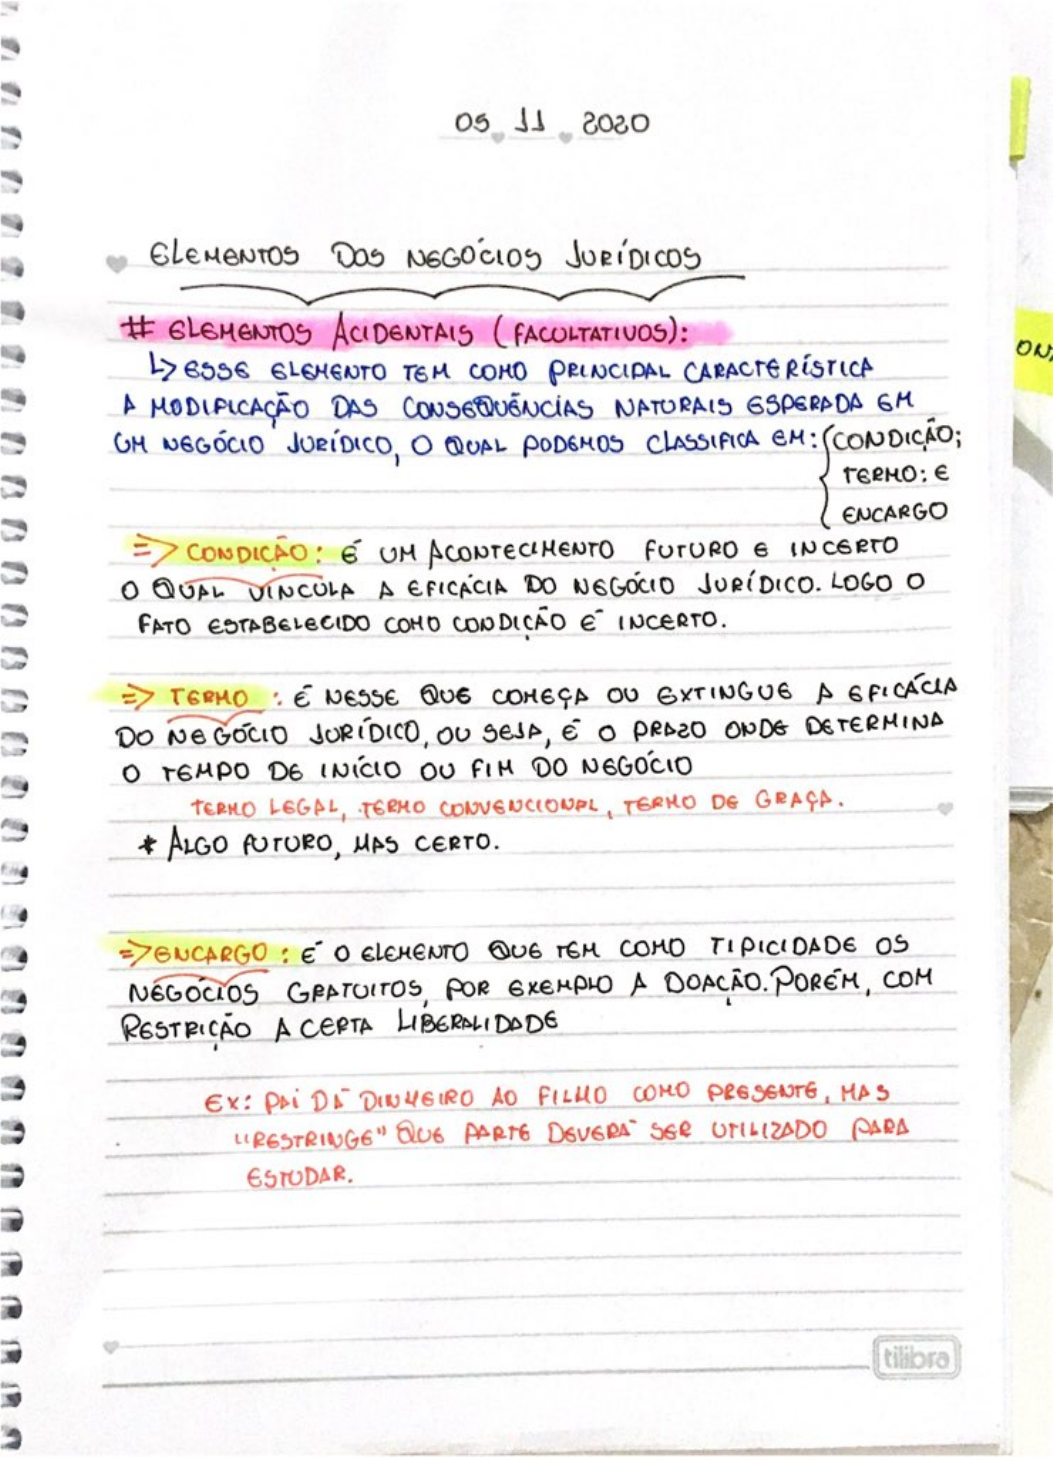 05 11 2020
ELEMENTOS DOS NEGÓCIOS JURÍDICOS
# ELEMENTOS ACIDENTAIS (FACULTATIVOS):
↳ ESSE ELEMENTO TEM COMO PRINCIPAL CARACTERÍSTICA
A MODIFICAÇÃO DAS CONSEQUÊNCIAS NATURAIS ESPERADA EM
UM NEGÓCIO JURÍDICO, O QUAL PODEMOS CLASSIFICA EM: { CONDIÇÃO;
TERMO: E
ENCARGO
=> CONDIÇÃO: É UM ACONTECIMENTO FUTURO E INCERTO
O QUAL VINCULA A EFICÁCIA DO NEGÓCIO JURÍDICO. LOGO O
FATO ESTABELECIDO COMO CONDIÇÃO É INCERTO.
=> TERMO : É NESSE QUE COMEÇA OU EXTINGUE A EFICÁCIA
DO NEGÓCIO JURÍDICO, OU SEJA, É O PRAZO ONDE DETERMINA
O TEMPO DE INÍCIO OU FIM DO NEGÓCIO
TERMO LEGAL, TERMO CONVENCIONAL, TERMO DE GRAÇA.
* ALGO FUTURO, MAS CERTO.
=> ENCARGO : É O ELEMENTO QUE TEM COMO TIPICIDADE OS
NEGÓCIOS GRATUITOS, POR EXEMPLO A DOAÇÃO. PORÉM, COM
RESTRIÇÃO A CERTA LIBERALIDADE
EX: PAI DÁ DINHEIRO AO FILHO COMO PRESENTE, MAS
"RESTRINGE" QUE PARTE DEVERÁ SER UTILIZADO PARA
ESTUDAR.
tilibra